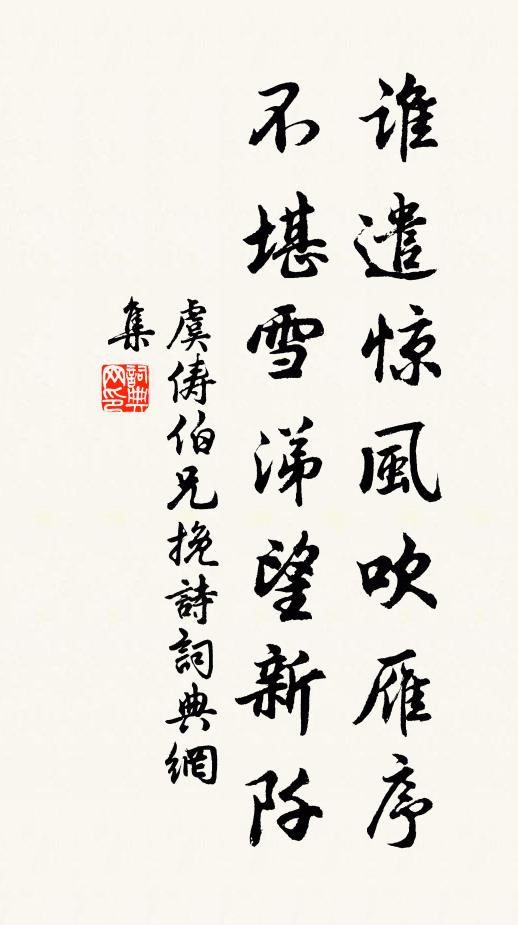 誰遣惊風吹雁序
不堪雪涕望新阡
虞儔伯兄挽詩詞典網
集
詞典网印